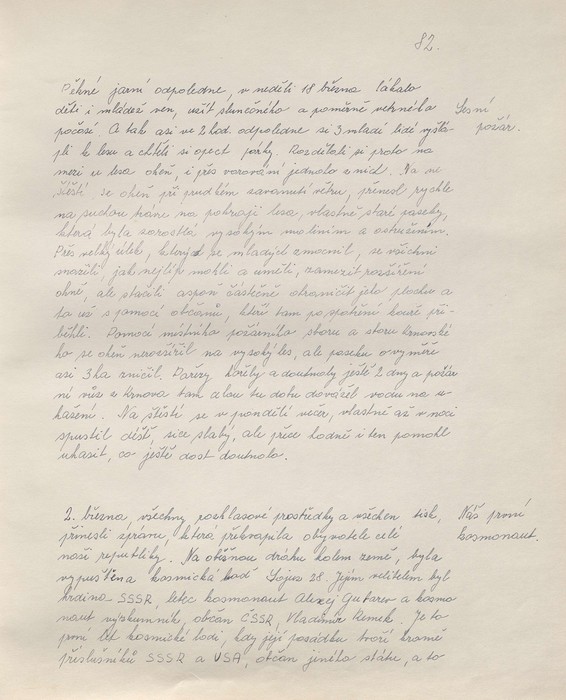 82.
Pěkné jarní odpoledne, v neděli 18 března lákalo
děti i mládež ven, užít slunečného a poměrně
Lesní
požár.
počasí. A tak asi ve 2 hod. odpoledne si 3 mladí lidé vyšlá-
pli k lesu a chtěli si opect párky. Rozdělali si proto na
mezi u lesa oheň, i přes varování jednoho z nich. Na ne
štěstí se oheň při prudkém zavanutí větru, přenesl rychle
na suchou trávu na pokraji lesa, vlastně staré paseky,
která byla zarostlá vysokým maliním a ostružiním.
Přes velký úlek, který se mladých zmocnil, se všichni
snažili, jak nejlép mohli a uměli, zamezit rozšíření
ohně, ale stačili aspoň částečně ohraničit jeho plochu a
to už s pomocí občanů, kteří tam po spatření kouře při-
běhli. Pomocí místního požárního sboru a sboru krnovské-
ho se oheň nerozšířil na vysoký les, ale paseku o výměře
asi 3 ha zničil. Pařezy hořely a doutnaly ještě 2 dny a požár
ní vůz z Krnova tam celou tu dobu dovážel vodu na u-
hašení. Na štěstí se v pondělí večer, vlastně až v noci
spustil déšť, sice slabý, ale přece hodně i ten pomohl
uhasit, co ještě dost doutnalo.
2. března, všechny rozhlasové prostředky a všechen tisk,
Náš první
kosmonaut.
přinesli zprávu, která překvapila obyvatele celé
naší republiky. Na oběžnou dráhu kolem země, byla
vypuštěna kosmická loď Sojuz 28. Jejím velitelem byl
hrdina SSSR, letec kosmonaut Alexej Gubarev a kosmo
naut výzkumník, občan ČSSR, Vladimír Remek. Je to
první let kosmické lodi, kdy její posádku tvoří kromě
příslušníků SSSR a USA, občan jiného státu, a to